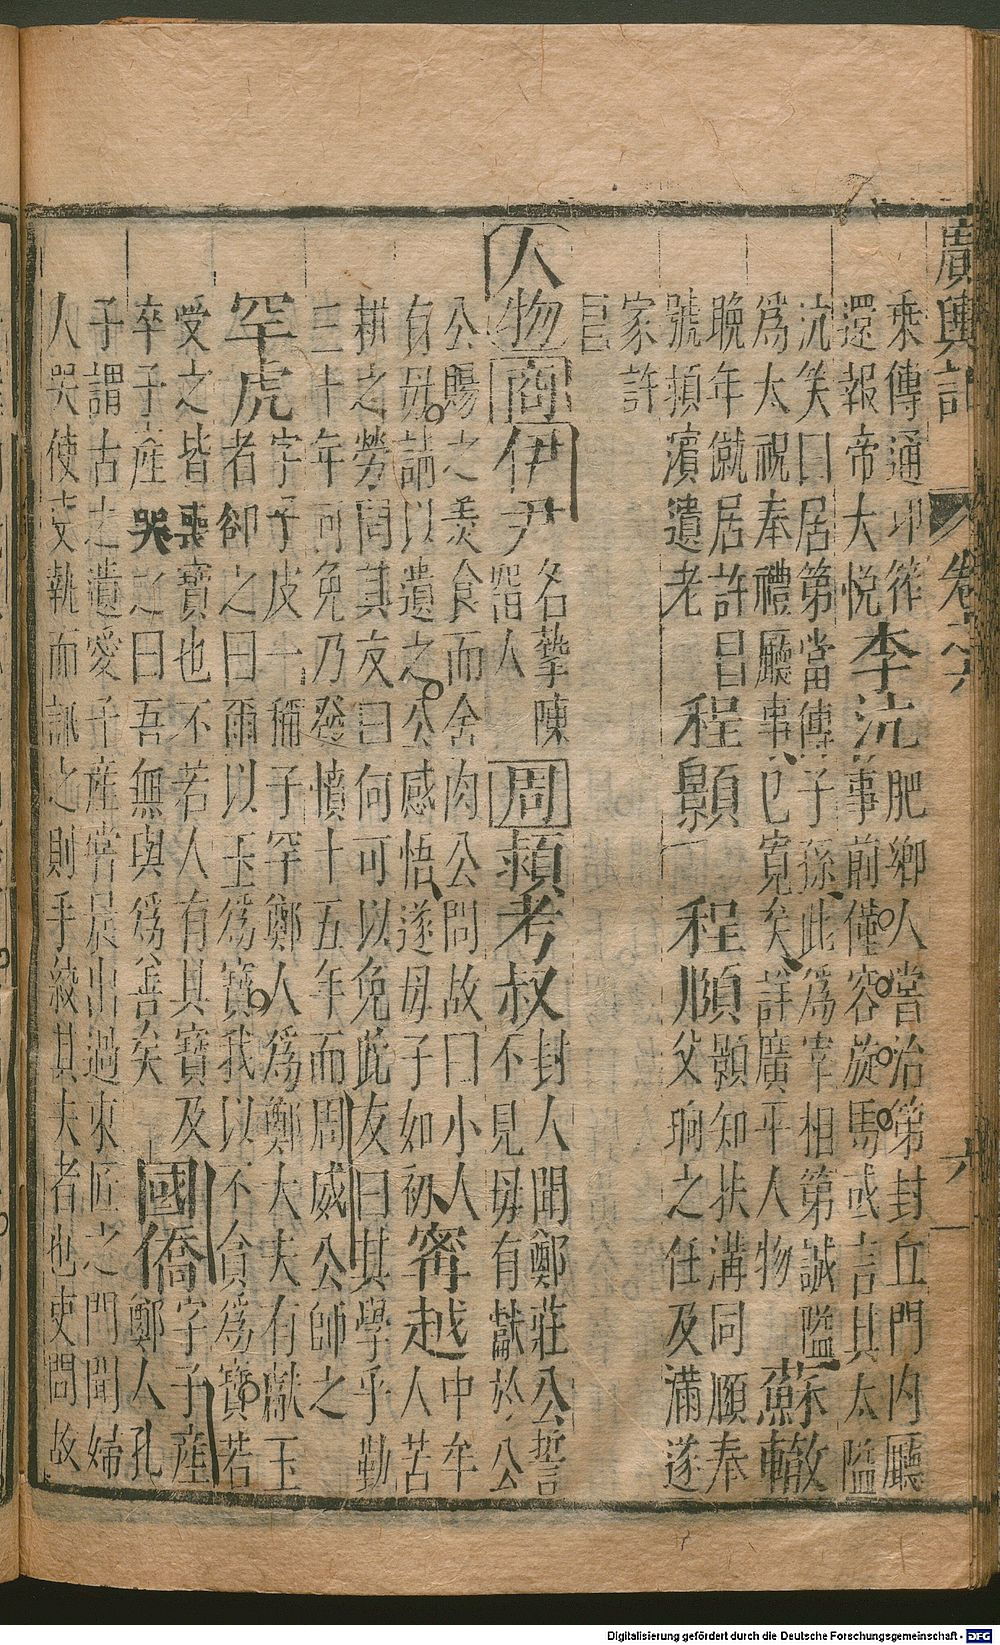 廣輿記 卷之六 六
乘傳通卭筰
還報帝大悅
李沆
肥鄉人嘗治第封丘門內廳
事前僅容旋馬或言其太隘
沆笑曰居第當傳子孫此爲宰相第誠隘
爲太祝奉禮廳事已寬矣詳廣平人物
蘇轍
晚年僦居許昌
號潁濱遺老
程顥 程順
顥知扶溝同順奉
父珦之任及滿遂
家許
昌
人物 商 伊尹
名摯陳
留人
周 潁考叔
封人聞鄭莊公誓
不見毋有獻於公
公賜之羹食而舍肉公問故曰小人
有毋請以遺之公感悟遂毋子如初
甯越
中牟
人苦
耕之勞問其友曰何可以免此友曰其學乎勤
三十年可免乃發憤十五年而周威公師之
罕虎
字子皮一稱子罕鄭人爲鄭大夫有獻玉
者卻之曰爾以玉爲寶我以不貪爲寶若
受之皆喪寶也不若人有其寶及
卒子產哭之曰吾無與爲善矣
國僑
字子產
鄭人孔
子謂古之遺愛子產嘗晨出過東匠之門聞婦
人哭使吏執而訊之則手絞其夫者也吏問故
Digitalisierung gefördert durch die Deutsche Forschungsgemeinschaft - DFG